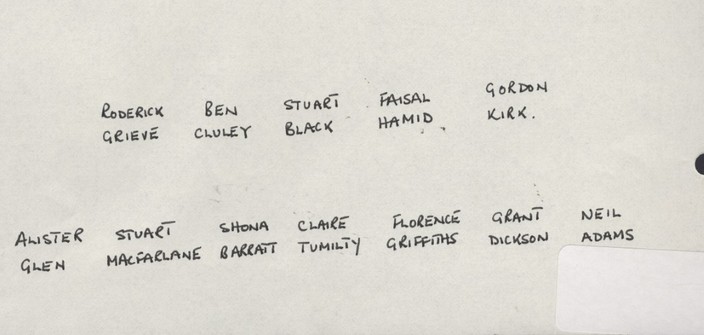 RODERICK BEN STUART FAISAL GORDON
GRIEVE CLULEY BLACK HAMID KIRK.
ALISTER STUART SHONA CLAIRE FLORENCE GRANT NEIL
GLEN MACFARLANE BARRATT TUMILTY GRIFFITHS DICKSON ADAMS